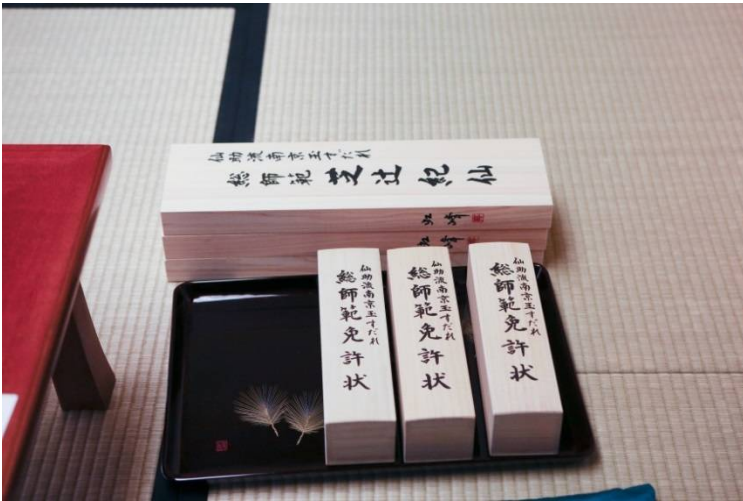 仙助流南京玉すだれ
総師範 芝辻紀仙
仙助流南京玉すだれ
総師範免許状
仙助流南京玉すだれ
総師範免許状
仙助流南京玉すだれ
総師範免許状